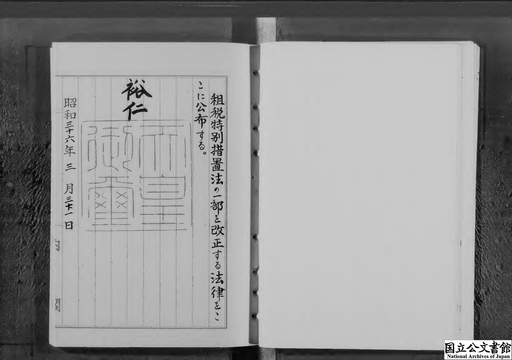 租税特別措置法の一部を改正する法律をこ
こに公布する。
裕仁
天皇
御璽
昭和三十六年三月三十一日
国立公文書館
National Archives of Japan